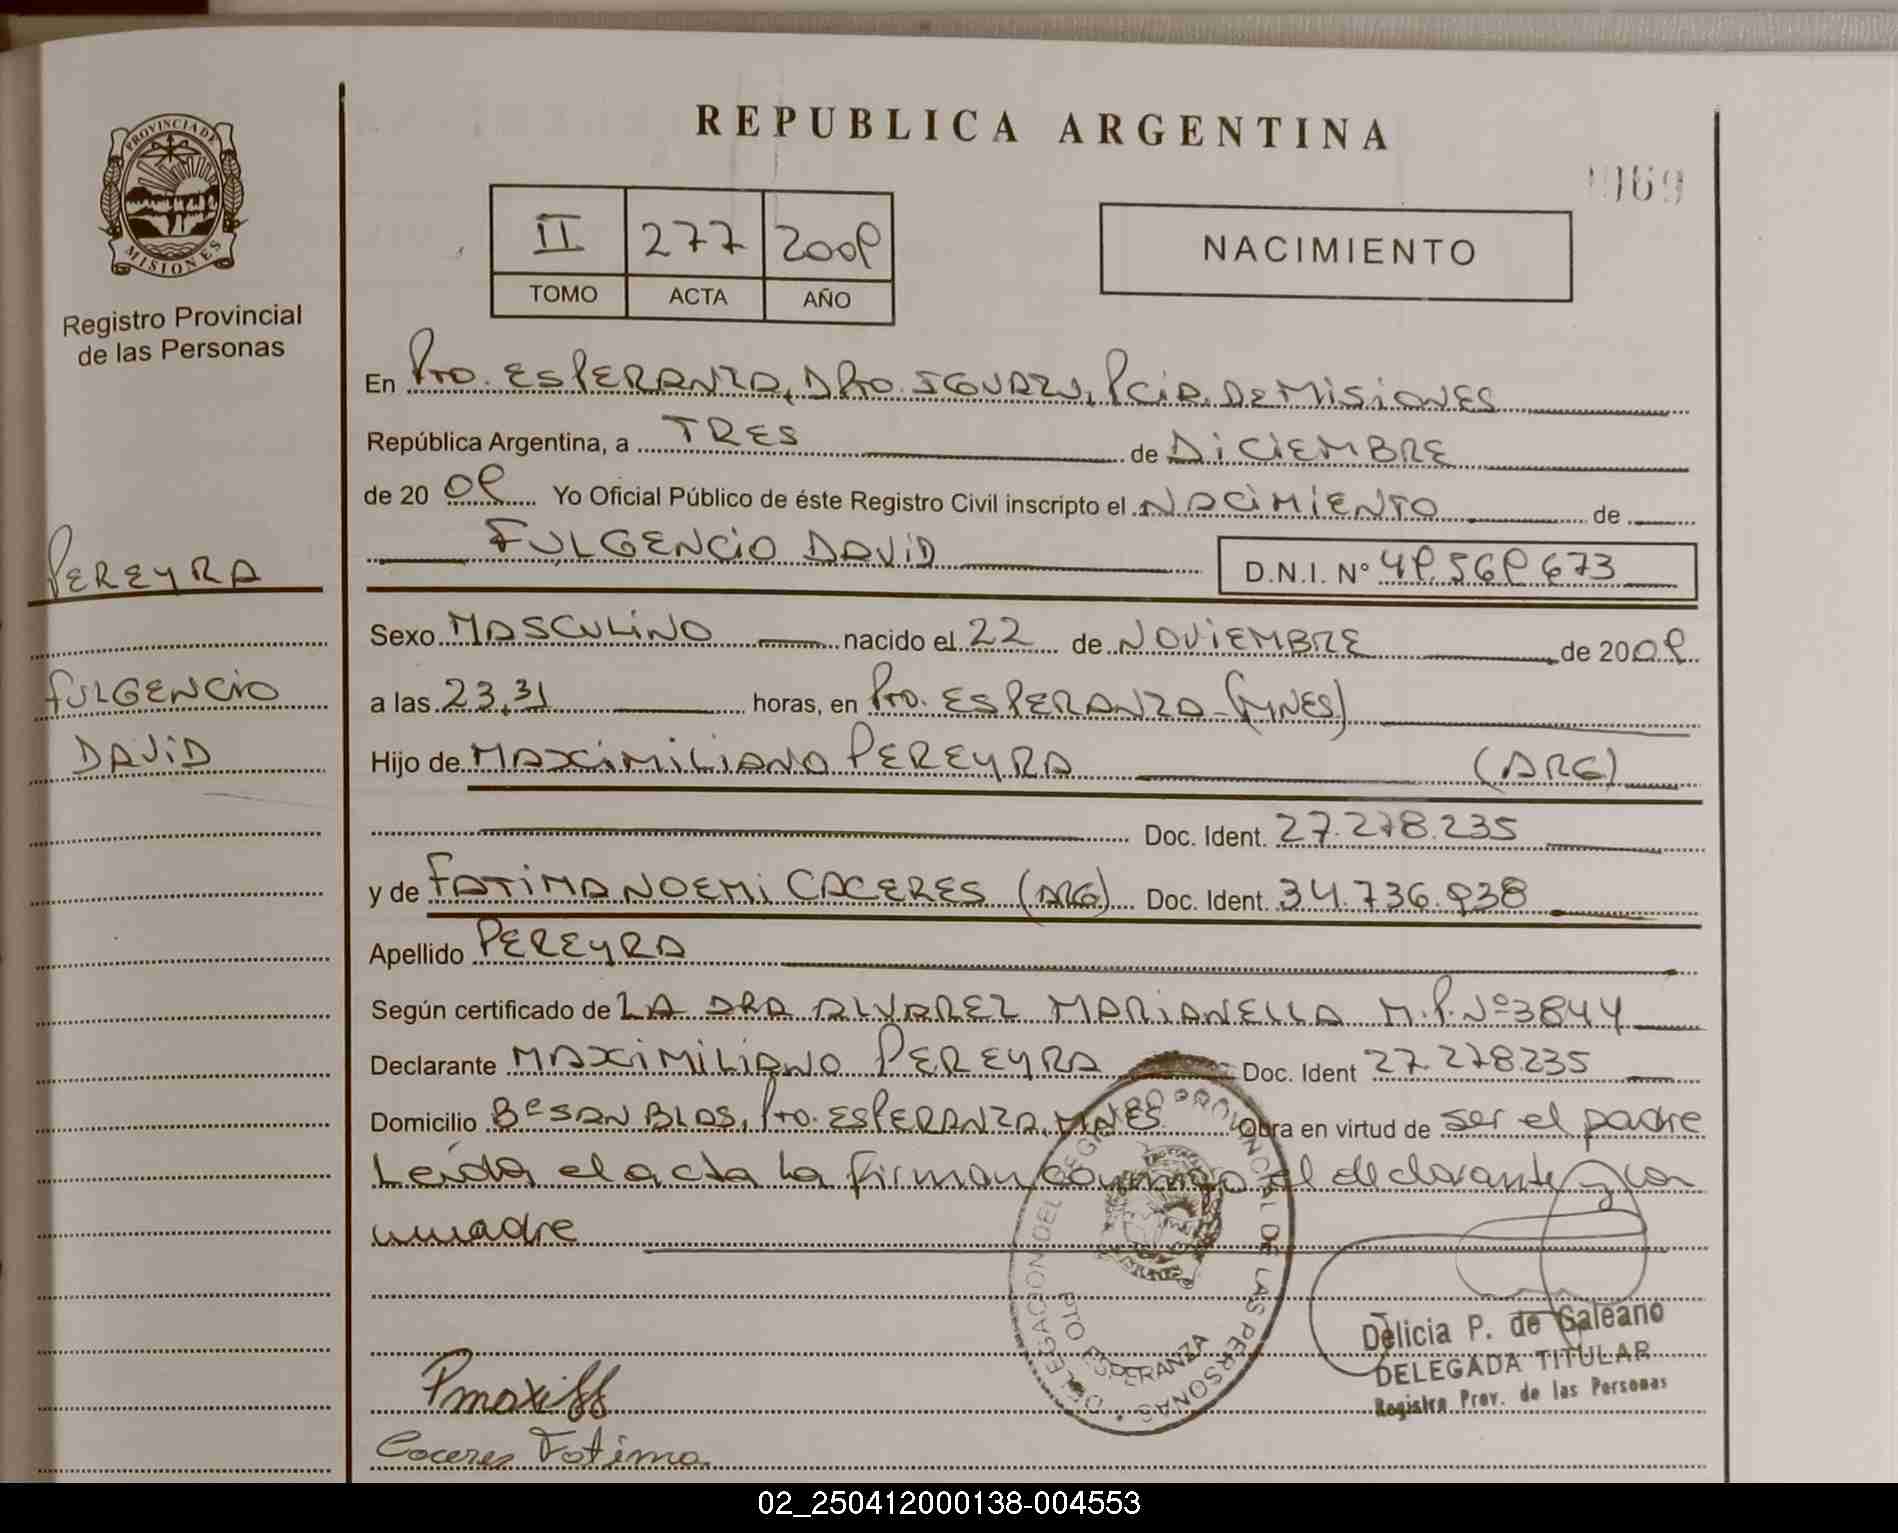 REPUBLICA ARGENTINA
PROVINCIA DE MISIONES
Registro Provincial
de las Personas
II 277 2009
TOMO ACTA AÑO
NACIMIENTO
En Pto. ESPERANZA, DPto. IGUAZU, PciA. DE MISIONES
República Argentina, a TRES de DICIEMBRE
de 20 09 Yo Oficial Público de éste Registro Civil inscripto el NACIMIENTO de
FULGENCIO DAVID D.N.I. N° 49.569.673
PEREYRA
FULGENCIO
DAVID
Sexo MASCULINO nacido el 22 de NOVIEMBRE de 2009
a las 23,31 horas, en Pto. ESPERANZA-(MNES)
Hijo de MAXIMILIANO PEREYRA (ARG)
Doc. Ident. 27.278.235
y de FATIMA NOEMI CACERES (ARG) Doc. Ident. 34.736.938
Apellido PEREYRA
Según certificado de LA DRA ALVAREZ MARIANELLA M.P.Nº3844
Declarante MAXIMILIANO PEREYRA Doc. Ident 27.278.235
Domicilio Bº SAN BLAS, Pto. ESPERANZA, MNES Obra en virtud de ser el padre
Leida el acta la firman conmigo el declarante y la
madre
DELEGACION DEL REGISTRO PROVINCIAL DE LAS PERSONAS
PTO ESPERANZA
Delicia P. de Galeano
DELEGADA TITULAR
Registro Prov. de las Personas
Caceres Fatima
02_250412000138-004553